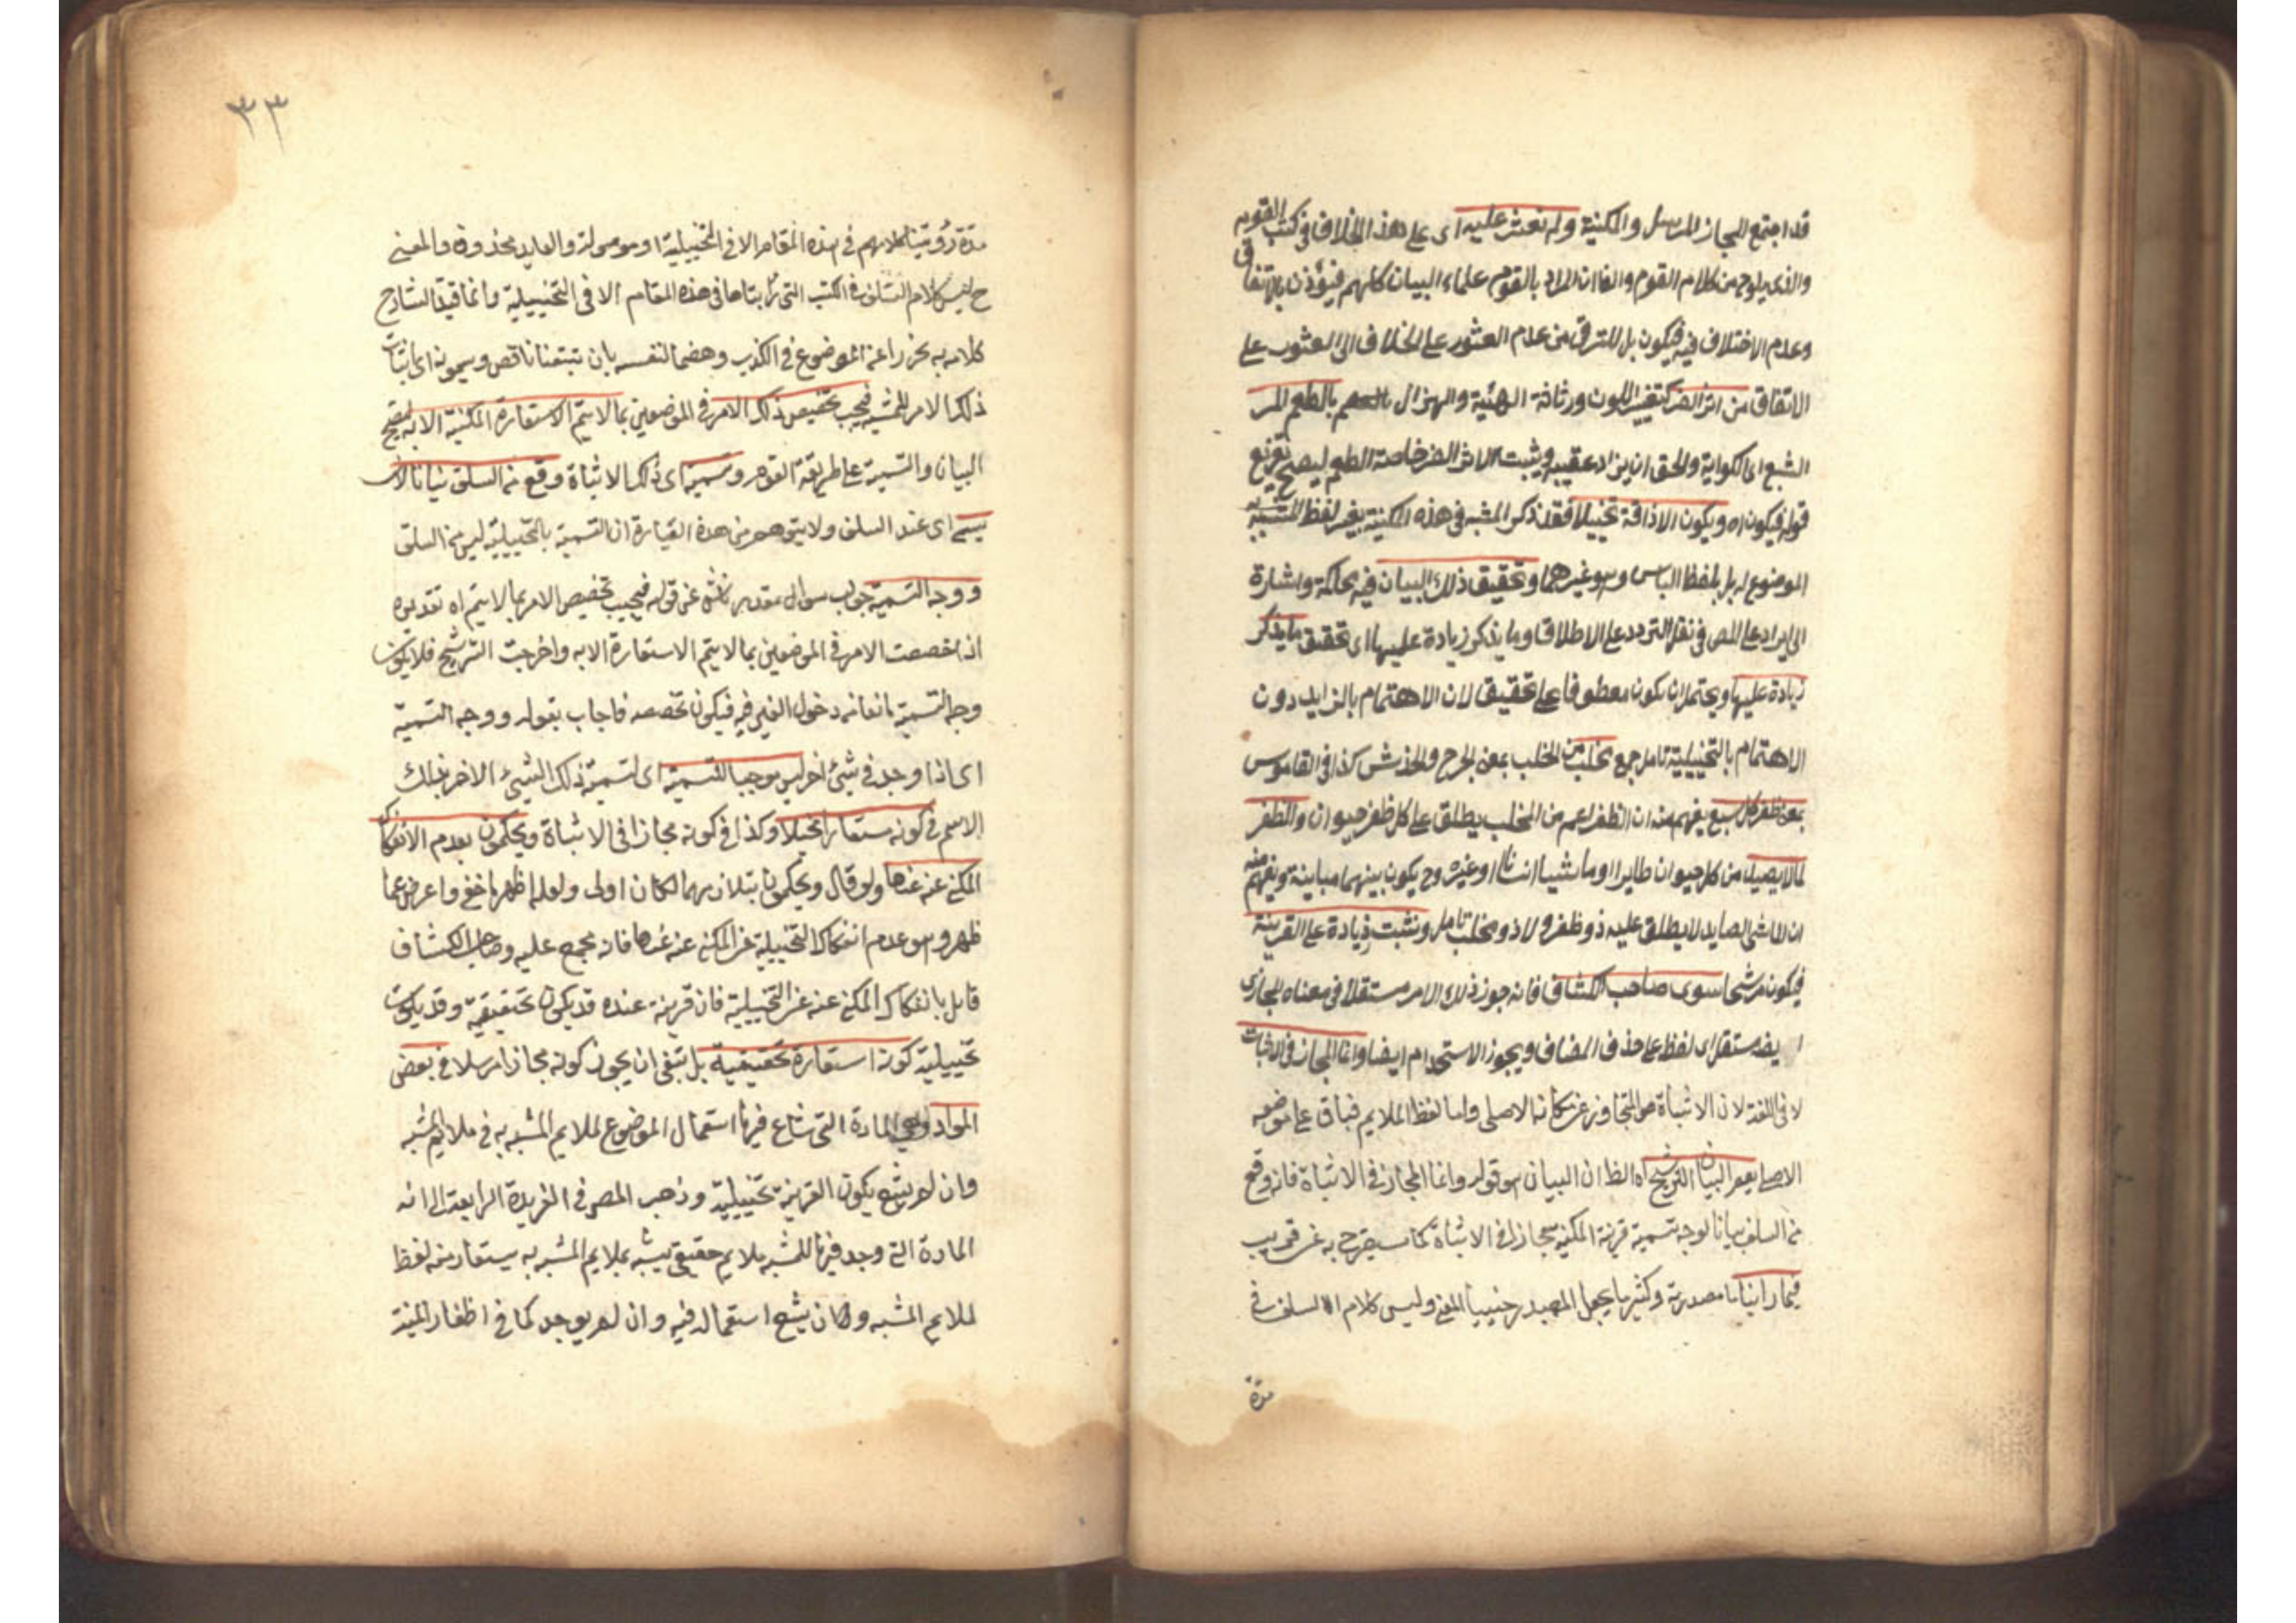 قد اجتمع المجاز المرسل والمكنية ولم نعثر عليه اى على هذا الخلاف فى كتب القوم
والذى يلوح من كلام القوم والظان المراد بالقوم علماء البيان كلهم فيؤذن بالاتفاق
وعدم الاختلاف فيه فيكون بل للترقى من عدم العثور على الخلاف الى العثور على
الاتفاق من اثر الضر كتغير اللون ورثاثة الهيئة والهزال بالطعم المر
البشع اى الكراية والحق ان يزاد عقيبه ويثبت الاثر الضر خاصة الطعم ليصح تفريع
قوله فيكون اه ويكون الاذاقة تخييلا فقد ذكر المشبه فى هذه المكنية بغير لفظ المشبه به
الموضوع له بل بلفظ اللباس وهو غيرهما وتحقيق ذلك البيان فيه محاكمة واشارة
الى ايراد على المص فى نقل التردد على الاطلاق وما يذكر زيادة عليها اى تحقيق ما يذكر
زيادة عليها ويحتمل ان يكون معطوفا على تحقيق لان الاهتمام بالزايد دون
الاهتمام بالتخييلية تامل جمع مخلب من الخلب بمعنى الجرح والخدش كذا فى القاموس
بمعنى ظفر كل سبع يفهم منه ان الظفر اعم من المخلب يطلق على كل ظفر حيوان والظفر
لما لا يصيد من كل حيوان طايرا او ماشيا انسانا او غيره وح يكون بينهما مباينة ويفهم منه
ان الماشى الصايد لا يطلق عليه ذو ظفر ولا ذو مخلب تامل ونثبت زيادة على القرينة
فيكون مرشحا سوى صاحب الكشاف فانه جوز ذلك الامر مستقلا فى معناه المجازى
مستقل اى لفظ على حذف المضاف ويجوز الاستخدام ايضا وانما المجاز فى الاثبات
لا فى اللغة لان الاثباة هو المتجاوز عن مكانه الاصلى واما لفظ الملايم فباق على موضوعه
الاصلى يعم البيان الترشيح اه الظ ان البيان هو قوله وانما المجاز فى الاثباة فانه وقع
من السلف بيانا لوجه تسمية قرينة المكنية مجازا فى الاثباة كما سيصرح به عن قريب
فيما راينا ما مصدرية وكثيرا ما يجعل المصدر حينيا المعنى وليس كلام السلف فى
مدة
٣٣
مدة رؤيتنا كلامهم فى هذه المقام الا فى التخييلية او موصولة والعايد محذوف والمعنى
ح ليس كلام السلف فى الكتب التى رأيناها فى هذه المقام الا فى التخييلية وانما قيد الشارح
كلامه به تحرزا عن الوقوع فى الكذب وهضما لنفسه بان تتبعنا ناقص ويسمونه اى اثبات
ذلك الامر للمشبه فيجب تخصيص ذلك الامر فى الموضعين بما لا يتم الاستعارة المكنية الا به ليصح
البيان والتسمية على طريقة القوم وتسمية اى ذلك الاثباة وقع من السلف بيانا
يسمى اى عند السلف ولا يتوهم من هذه العبارة ان التسمية بالتخييلية ليس من السلف
ووجه التسمية جواب سوال مقدر ناش عن قوله فيجب تخصيص الامر بما لا يتم اه تقديره
اذا خصصت الامر فى الموضعين بما لا يتم الاستعارة الا به واخرجت الترشيح فلا يكون
وجه التسمية مانعا من دخول الغير فيه فيكون تخصصه فاجاب بقوله ووجه التسمية
اى اذا وجد فى شئ اخر ليس موجبا للتسمية اى لتسمية ذلك الشيئ الاخر بذلك
الاسم فى كونه مستعارا تخييلا وكذا فى كونه مجازا فى الاثباة ويحكمون بعدم الانفكاك
المكنى عنه عنها ولو قال ويحكمون بتلازمهما لكان اولى ولعله اظهر ما خفى واعرض عما
ظهر وهو عدم انفكاك التخييلية عن المكنى عنه عنها فانه مجمع عليه وصاحب الكشاف
قايل بانفكاك المكنى عنه عن التخييلية فان قرينة عنده قد يكون تحقيقية وقد يكون
تخييلية كونه استعارة تحقيقية بل ينبغى ان يجوز كونه مجازا مرسلا فى بعض
المواد وهى المادة التى شاع فيها استعمال الموضوع لملايم المشبه به فى ملايم المشبه
وان لم يشع يكون القرينة تخييلية وذهب المص فى الفريدة الرابعة الى انه
المادة التى وجد فيها للمشبه ملايم حقيقى يشبه بملايم المشبه به يستعار منه لفظ
لملايم المشبه وكان يشع استعماله فيه وان لم يوجد كما فى اظفار المنية